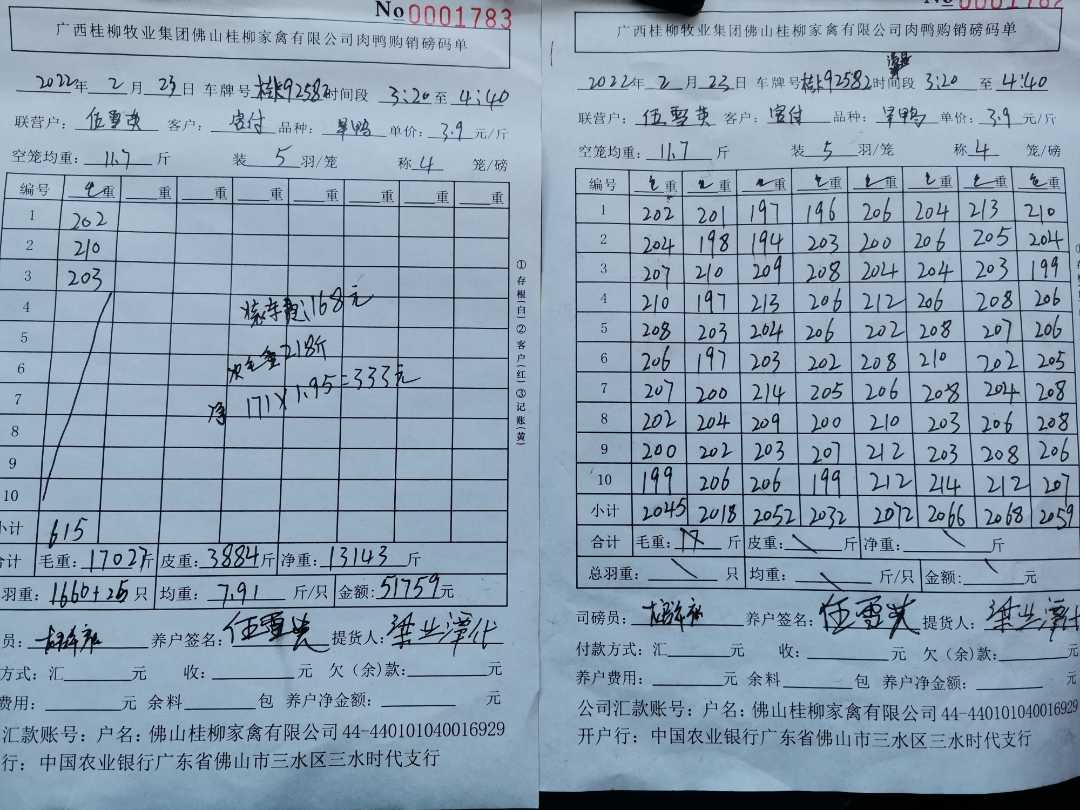 No 0001783
广西桂柳牧业集团佛山桂柳家禽有限公司肉鸭购销磅码单
2022年 2 月 23 日 车牌号 桂K92582 时间段 3:20 至 4:40
联营户: 伍雪英 客户: 寄付 品种: 旱鸭 单价: 3.9 元/斤
空笼均重: 11.7 斤 装 5 羽/笼 称 4 笼/磅
编号 毛重 重 重 重 重 重 重 重
1 202
2 210
3 203
4
5
6
7
8
9
10
小计 615
168元
次毛重218斤
净 171×1.95=333元
合计 毛重: 17027斤 皮重: 3884斤 净重: 13143 斤
羽重: 1660+25 只 均重: 7.91 斤/只 金额: 51759元
员: 养户签名: 伍雪英 提货人: 梁业泽代
方式: 汇 元 收: 元 欠(余)款: 元
费用: 元 余料 包 养户净金额: 元
汇款账号: 户名: 佛山桂柳家禽有限公司 44-440101040016929
行: 中国农业银行广东省佛山市三水区三水时代支行
①存根(白)②客户(红)③记账(黄)
No 0001782
广西桂柳牧业集团佛山桂柳家禽有限公司肉鸭购销磅码单
2022年 2 月 23 日 车牌号 桂K92582 时间段 3:20 至 4:40
联营户: 伍雪英 客户: 寄付 品种: 旱鸭 单价: 3.9 元/斤
空笼均重: 11.7 斤 装 5 羽/笼 称 4 笼/磅
编号 毛重 毛重 毛重 毛重 毛重 毛重 毛重 毛重
1 202 201 197 196 206 204 213 210
2 204 198 194 203 200 206 205 204
3 207 210 209 208 204 204 203 199
4 210 197 213 206 212 206 208 206
5 208 203 204 206 202 208 207 206
6 206 197 203 202 208 210 202 205
7 207 200 214 205 206 208 204 208
8 202 204 209 200 210 203 206 208
9 200 202 203 207 212 203 208 206
10 199 206 206 199 212 214 212 207
小计 2045 2018 2052 2032 2072 2066 2068 2059
合计 毛重: 斤 皮重: 斤 净重: 斤
总羽重: 只 均重: 斤/只 金额: 元
司磅员: 养户签名: 伍雪英 提货人: 梁业泽代
付款方式: 汇 元 收: 元 欠(余)款: 元
养户费用: 元 余料 包 养户净金额: 元
公司汇款账号: 户名: 佛山桂柳家禽有限公司 44-440101040016929
开户行: 中国农业银行广东省佛山市三水区三水时代支行